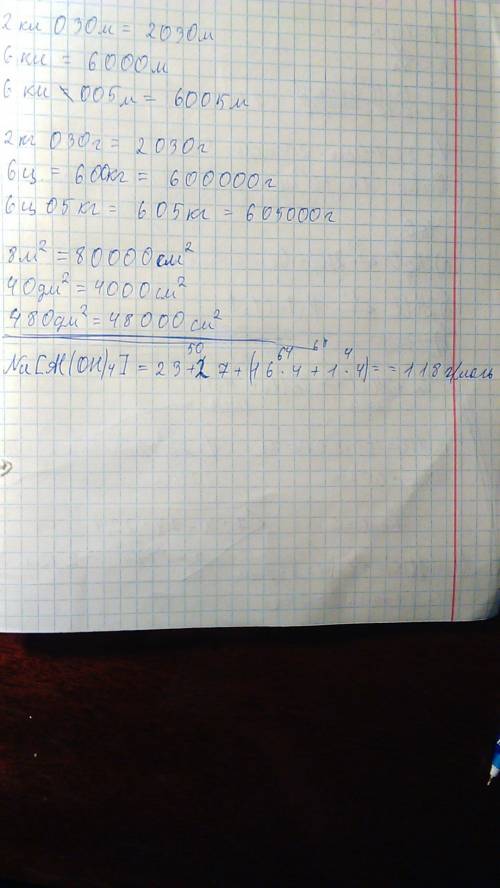 2 км 030м = 2030м
6 км = 6000м
6 км 005м = 6005м
2кг 030г = 2030г
6ц = 600кг = 600000г
6ц 05кг = 605кг = 605000г
8м² = 80000см²
40дм² = 4000см²
480дм² = 48000см²
50 64 68 4
Na[Al(OH)₄] = 23+27+(16·4+1·4)= =118г/моль